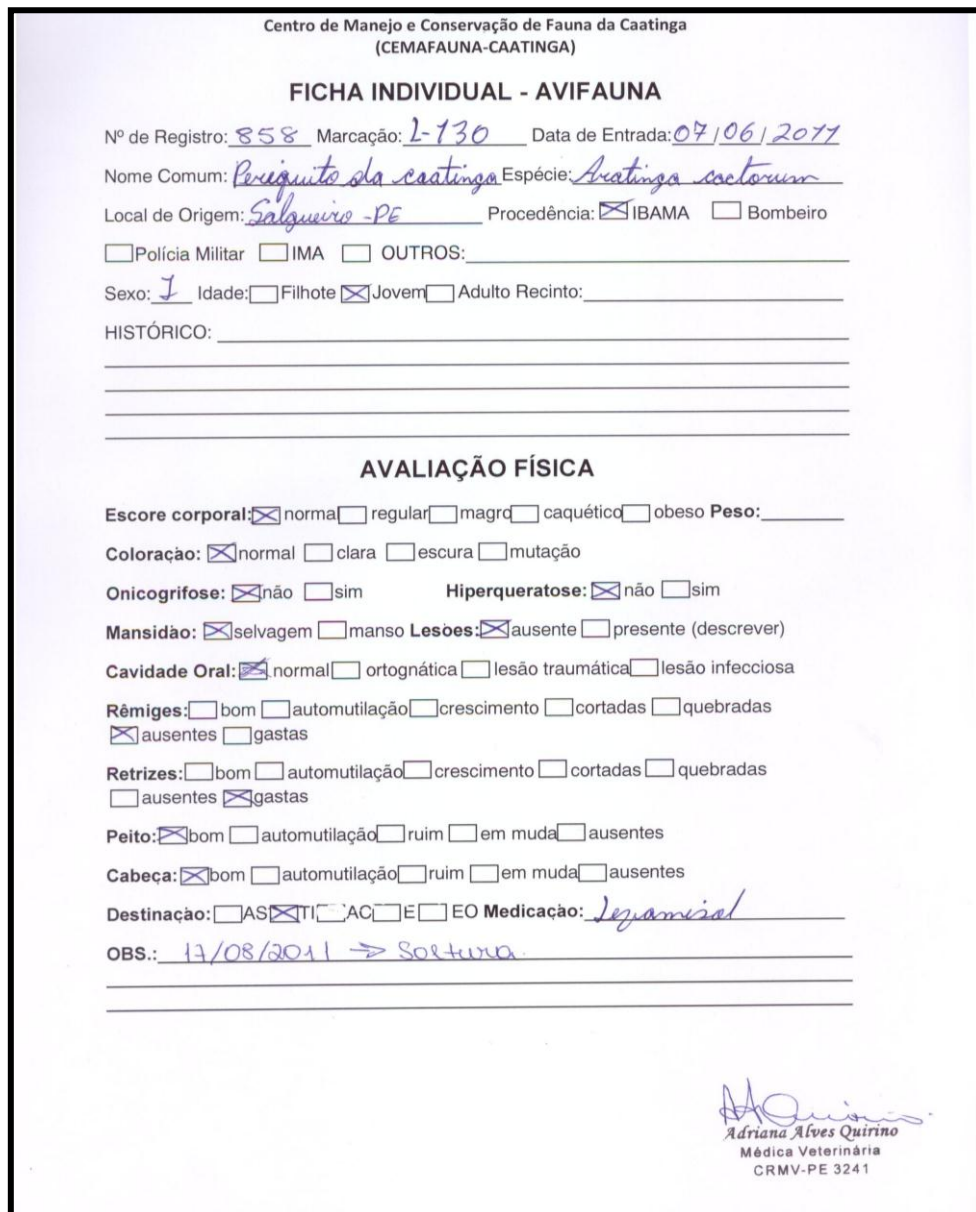 Centro de Manejo e Conservação de Fauna da Caatinga
(CEMAFAUNA-CAATINGA)
FICHA INDIVIDUAL - AVIFAUNA
Nº de Registro: 858 Marcação: L-130 Data de Entrada: 07/06/2011
Nome Comum: Periquito da caatinga Espécie: Aratinga cactorum
Local de Origem: Salgueiro - PE Procedência: IBAMA Bombeiro
Polícia Militar IMA OUTROS:
Sexo: I Idade: Filhote Jovem Adulto Recinto:
HISTÓRICO:
AVALIAÇÃO FÍSICA
Escore corporal: normal regular magro caquético obeso Peso:
Coloração: normal clara escura mutação
Onicogrifose: não sim Hiperqueratose: não sim
Mansidão: selvagem manso Lesões: ausente presente (descrever)
Cavidade Oral: normal ortognática lesão traumática lesão infecciosa
Rêmiges: bom automutilação crescimento cortadas quebradas
ausentes gastas
Retrizes: bom automutilação crescimento cortadas quebradas
ausentes gastas
Peito: bom automutilação ruim em muda ausentes
Cabeça: bom automutilação ruim em muda ausentes
Destinação: AS TI AC E EO Medicação:
OBS.: 17/08/2011 → Soltura.
Adriana Alves Quirino
Médica Veterinária
CRMV-PE 3241